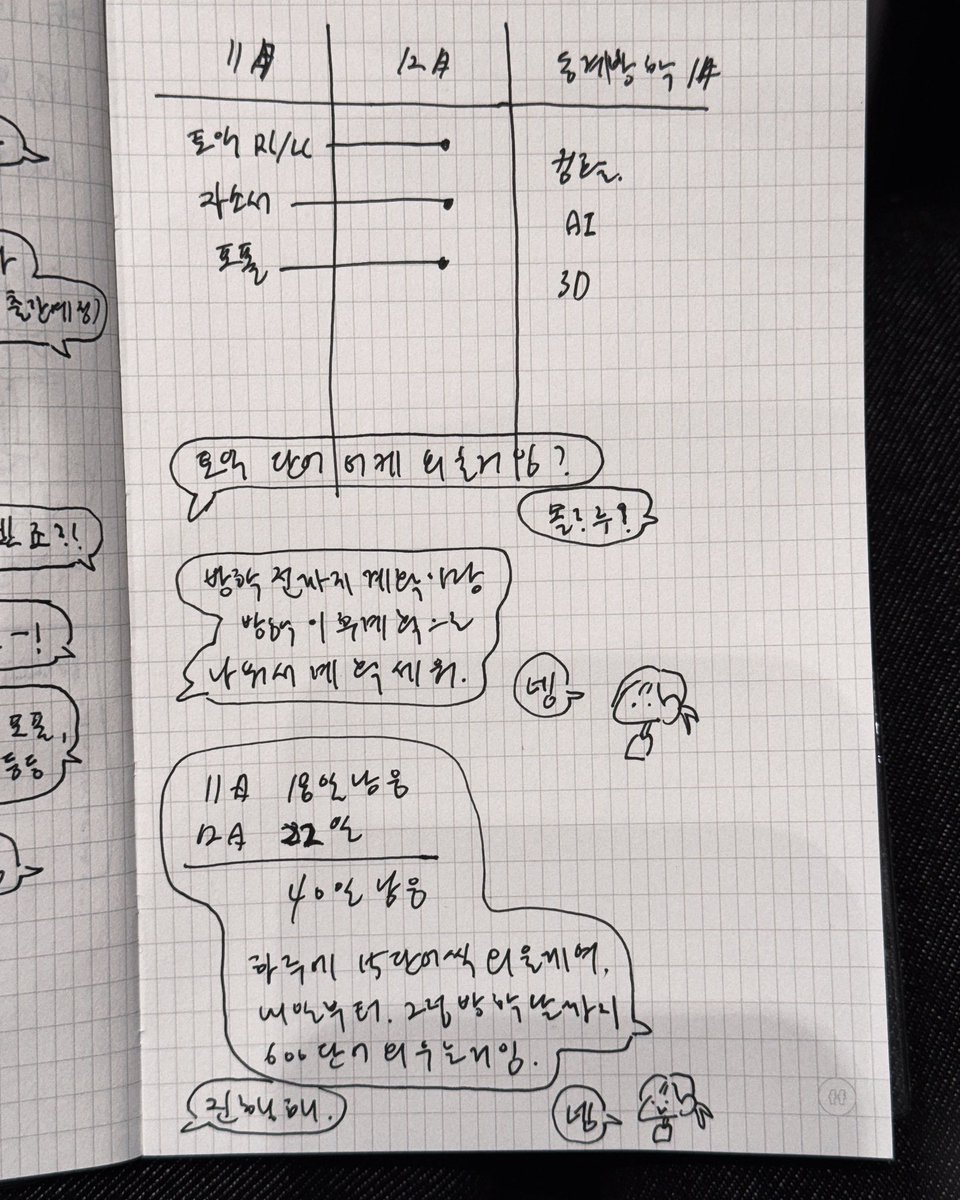 출간예정)
조?!
포폴,
등등
11월 12월 동계방학 1월
토익 RC/LC
자소서
포폴
컴활.
AI
3D
토익 단어 어케 외울거임?
몰?루?
방학 전까지 계획이랑
방학 이후 계획으로
나눠서 계획 세워.
넹
11월 18일 남음
12월 22일
40일 남음
하루에 15단어씩 외울게여,
내일부터. 그럼 방학날까지
600단어 외우는거임.
진행해.
넵